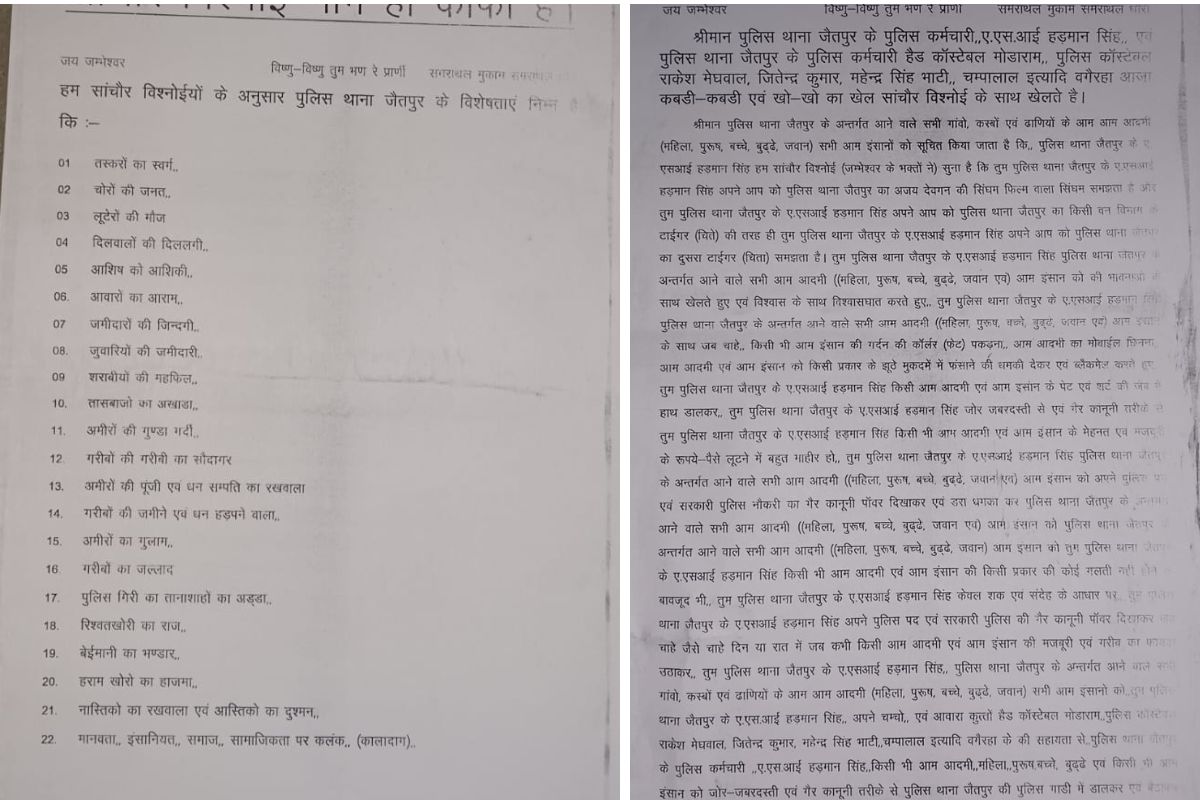 जय जम्भेश्वर विष्णु–विष्णु तुम भण रे प्राणी समराथल मुकाम
हम सांचौर विश्नोईयों के अनुसार पुलिस थाना जैतपुर के विशेषताएं निम्न है
कि :–
01 तस्करों का स्वर्ग,,
02 चोरों की जनत,,
03 लूटेरों की मौज
04 दिलवालों की दिललगी,,
05 आशिष को आशिकी,,
06. आवारों का आराम,,
07 जमीदारों की जिन्दगी,,
08. जुवारियों की जमीदारी,,
09 शराबीयों की महफिल,,
10. तासबाजो का अखाडा,,
11. अमीरों की गुण्डा गर्दी,,
12. गरीबों की गरीबी का सौदागर
13. अमीरों की पूंजी एवं धन सम्पति का रखवाला
14. गरीबों की जमीने एवं धन हड़पने वाला,,
15. अमीरों का गुलाम,,
16. गरीबों का जल्लाद
17. पुलिस गिरी का तानाशाहों का अड्डा,,
18. रिश्वतखोरी का राज,,
19. बेईमानी का भण्डार,,
20. हराम खोरो का हाजमा,,
21. नास्तिको का रखवाला एवं आस्तिको का दुश्मन,,
22. मानवता,, इंसानियत,, समाज,, सामाजिकता पर कलंक,, (कालादाग),,
जय जम्भेश्वर विष्णु–विष्णु तुम भण रे प्राणी समराथल मुकाम समराथल धोरा
श्रीमान पुलिस थाना जैतपुर के पुलिस कर्मचारी,,ए.एस.आई हड़मान सिंह,, एवं
पुलिस थाना जैतपुर के पुलिस कर्मचारी हैड कॉस्टेबल मोडाराम,, पुलिस कॉस्टेबल
राकेश मेघवाल, जितेन्द्र कुमार, महेन्द्र सिंह भाटी,, चम्पालाल इत्यादि वगैरहा आजा
कबडी–कबडी एवं खो–खो का खेल सांचौर विश्नोई के साथ खेलते है।
श्रीमान पुलिस थाना जैतपुर के अन्तर्गत आने वाले सभी गांवो, कस्बों एवं ढाणियों के आम आम आदमी
(महिला, पुरूष, बच्चे, बुढ्ढे, जवान) सभी आम इंसानों को सूचित किया जाता है कि,, पुलिस थाना जैतपुर के ए.
एसआई हड़मान सिंह हम सांचौर विश्नोई (जम्भेश्वर के भक्तों ने) सुना है कि तुम पुलिस थाना जैतपुर के ए.एसआई
हड़मान सिंह अपने आप को पुलिस थाना जैतपुर का अजय देवगन की सिंघम फिल्म वाला सिंघम समझता है और
तुम पुलिस थाना जैतपुर के ए.एसआई हड़मान सिंह अपने आप को पुलिस थाना जैतपुर का किसी वन विभाग के
टाईगर (चिते) की तरह ही तुम पुलिस थाना जैतपुर के ए.एसआई हड़मान सिंह अपने आप को पुलिस थाना जैतपुर
का दुसरा टाईगर (चिता) समझता है। तुम पुलिस थाना जैतपुर के ए.एसआई हड़मान सिंह पुलिस थाना जैतपुर के
अन्तर्गत आने वाले सभी आम आदमी ((महिला, पुरूष, बच्चे, बुढ्ढे, जवान एवं) आम इंसान को की भावनाओ के
साथ खेलते हुए एवं विश्वास के साथ विश्वासघात करते हुए,, तुम पुलिस थाना जैतपुर के ए.एसआई हड़मान सिंह
पुलिस थाना जैतपुर के अन्तर्गत आने वाले सभी आम आदमी ((महिला, पुरूष, बच्चे, बुढ्ढे, जवान एवं) आम इंसान
के साथ जब चाहे,, किसी भी आम इंसान की गर्दन की कॉर्लर (फेट) पकड़ना,, आम आदमी का मोबाईल छिनना,
आम आदमी एवं आम इंसान को किसी प्रकार के झूठे मुकदमें में फंसाने की धमकी देकर एवं ब्लैकमेल करते हुए,
तुम पुलिस थाना जैतपुर के ए.एसआई हड़मान सिंह किसी आम आदमी एवं आम इसांन के पेट एवं शर्ट की जेब में
हाथ डालकर,, तुम पुलिस थाना जैतपुर के ए.एसआई हड़मान सिंह जोर जबरदस्ती से एवं गैर कानूनी तरीके से
तुम पुलिस थाना जैतपुर के ए.एसआई हड़मान सिंह किसी भी आम आदमी एवं आम इंसान के मेहनत एवं मजदुरी
के रूपये–पैसे लूटने में बहुत माहीर हो,, तुम पुलिस थाना जैतपुर के ए.एसआई हड़मान सिंह पुलिस थाना जैतपुर
के अन्तर्गत आने वाले सभी आम आदमी ((महिला, पुरूष, बच्चे, बुढ्ढे, जवान एवं) आम इंसान को अपने पुलिस पद
एवं सरकारी पुलिस नौकरी का गैर कानूनी पॉवर दिखाकर एवं डरा धमका कर पुलिस थाना जैतपुर के अन्तर्गत
आने वाले सभी आम आदमी ((महिला, पुरूष, बच्चे, बुढ्ढे, जवान एवं) आम इंसान को पुलिस थाना जैतपुर के
अन्तर्गत आने वाले सभी आम आदमी ((महिला, पुरूष, बच्चे, बुढ्ढे, जवान) आम इंसान को तुम पुलिस थाना जैतपुर
के ए.एसआई हड़मान सिंह किसी भी आम आदमी एवं आम इंसान की किसी प्रकार की कोई गलती नही होने के
बावजूद भी,, तुम पुलिस थाना जैतपुर के ए.एसआई हड़मान सिंह केवल शक एवं संदेह के आधार पर,, तुम पुलिस
थाना जैतपुर के ए.एसआई हड़मान सिंह अपने पुलिस पद एवं सरकारी पुलिस की गैर कानूनी पॉवर दिखाकर
चाहे जैसे चाहे दिन या रात में जब कभी किसी आम आदमी एवं आम इंसान की मजबूरी एवं गरीब का फायदा
उठाकर,, तुम पुलिस थाना जैतपुर के ए.एसआई हड़मान सिंह,, पुलिस थाना जैतपुर के अन्तर्गत आने वाले सभी
गांवो, कस्बों एवं ढाणियों के आम आम आदमी (महिला, पुरूष, बच्चे, बुढ्ढे, जवान) सभी आम इंसानो को,,तुम पुलिस
थाना जैतपुर के ए.एस.आई हड़मान सिंह,, अपने चम्चो,, एवं आवारा कुत्तों हैड कॉस्टेबल मोडाराम,,पुलिस कॉस्टेबल
राकेश मेघवाल, जितेन्द्र कुमार, महेन्द्र सिंह भाटी,,चम्पालाल इत्यादि वगैरहा के की सहायता से,,पुलिस थाना जैतपुर
के पुलिस कर्मचारी ,,ए.एस.आई हड़मान सिंह,,किसी भी आम आदमी,,महिला,,पुरूष,बच्चे, बुढ्ढे एवं किसी भी आम
इंसान को जोर–जबरदस्ती एवं गैर कानूनी तरीके से पुलिस थाना जैतपुर की पुलिस गाडी में डालकर एवं बैठाकर